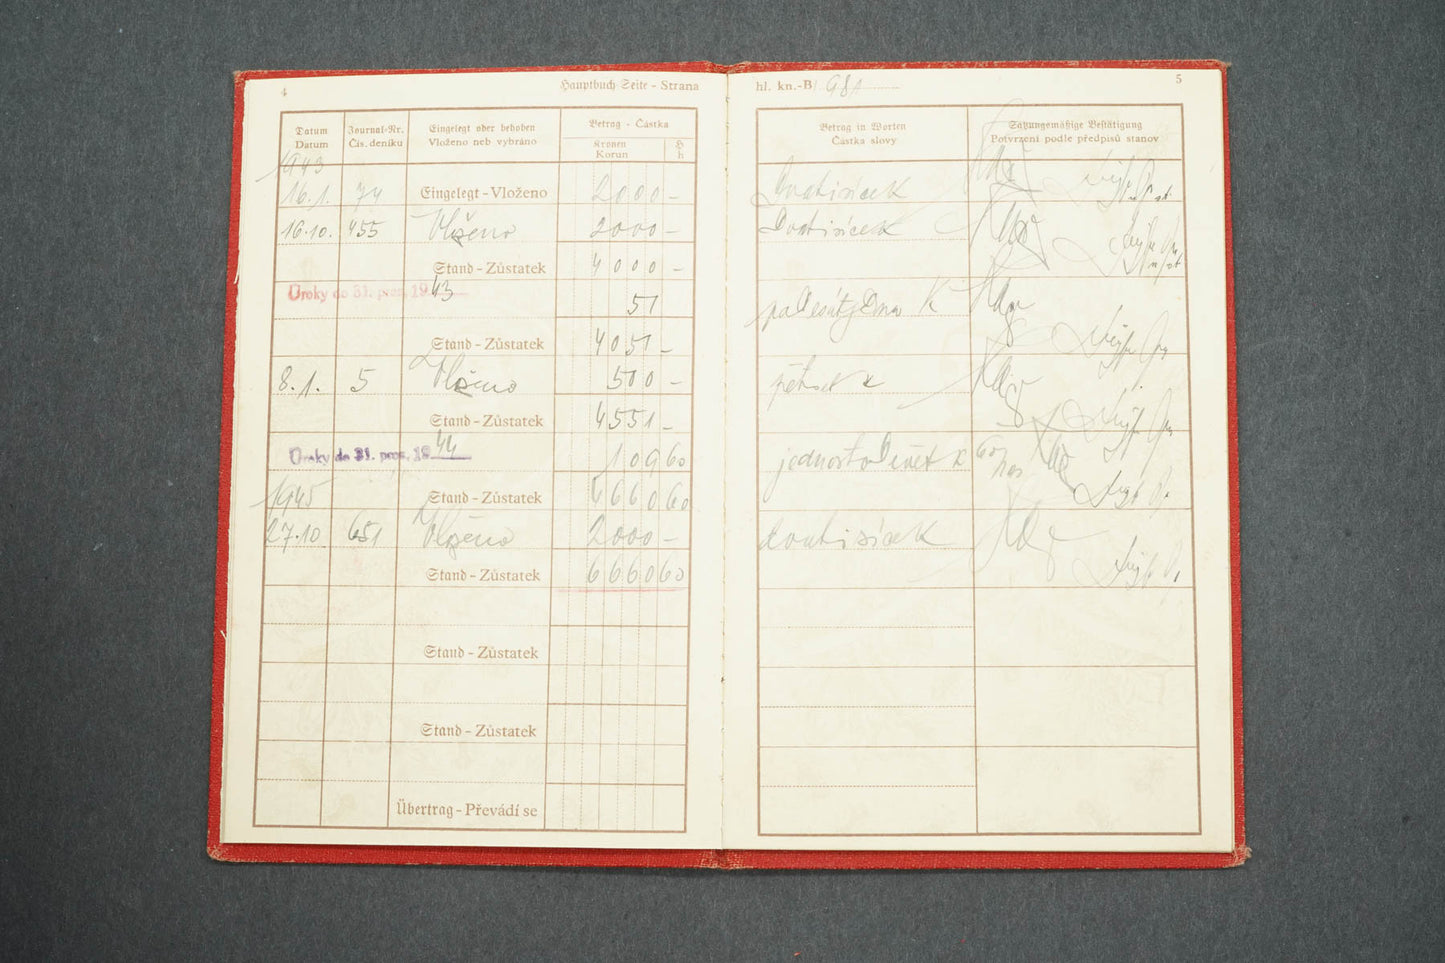 4
Hauptbuch-Seite - Strana
Datum
Datum
Journal-Nr.
Čís. deníku
Eingelegt oder behoben
Vloženo neb vybráno
Betrag - Částka
Kronen
Korun
H
h
1943
16.1. 74 Eingelegt - Vloženo 2000 -
16.10. 455 Vloženo 2000 -
Stand - Zůstatek 4000 -
Úroky do 31. pros. 1943 51
Stand - Zůstatek 4051 -
8.1. 5 Vloženo 500 -
Stand - Zůstatek 4551 -
Úroky do 31. pros. 1944 109 60
1945
Stand - Zůstatek 4660 60
27.10 651 Vloženo 2000 -
Stand - Zůstatek 6660 60
Stand - Zůstatek
Stand - Zůstatek
Übertrag - Převádí se
hl. kn.-B 981
5
Betrag in Worten
Částka slovy
Satzungsmäßige Bestätigung
Potvrzení podle předpisů stanov
Dvatisíce K
Dvatisíce K
padesátjedna K
pětset K
jednostodevět K 60
dvatisíce K